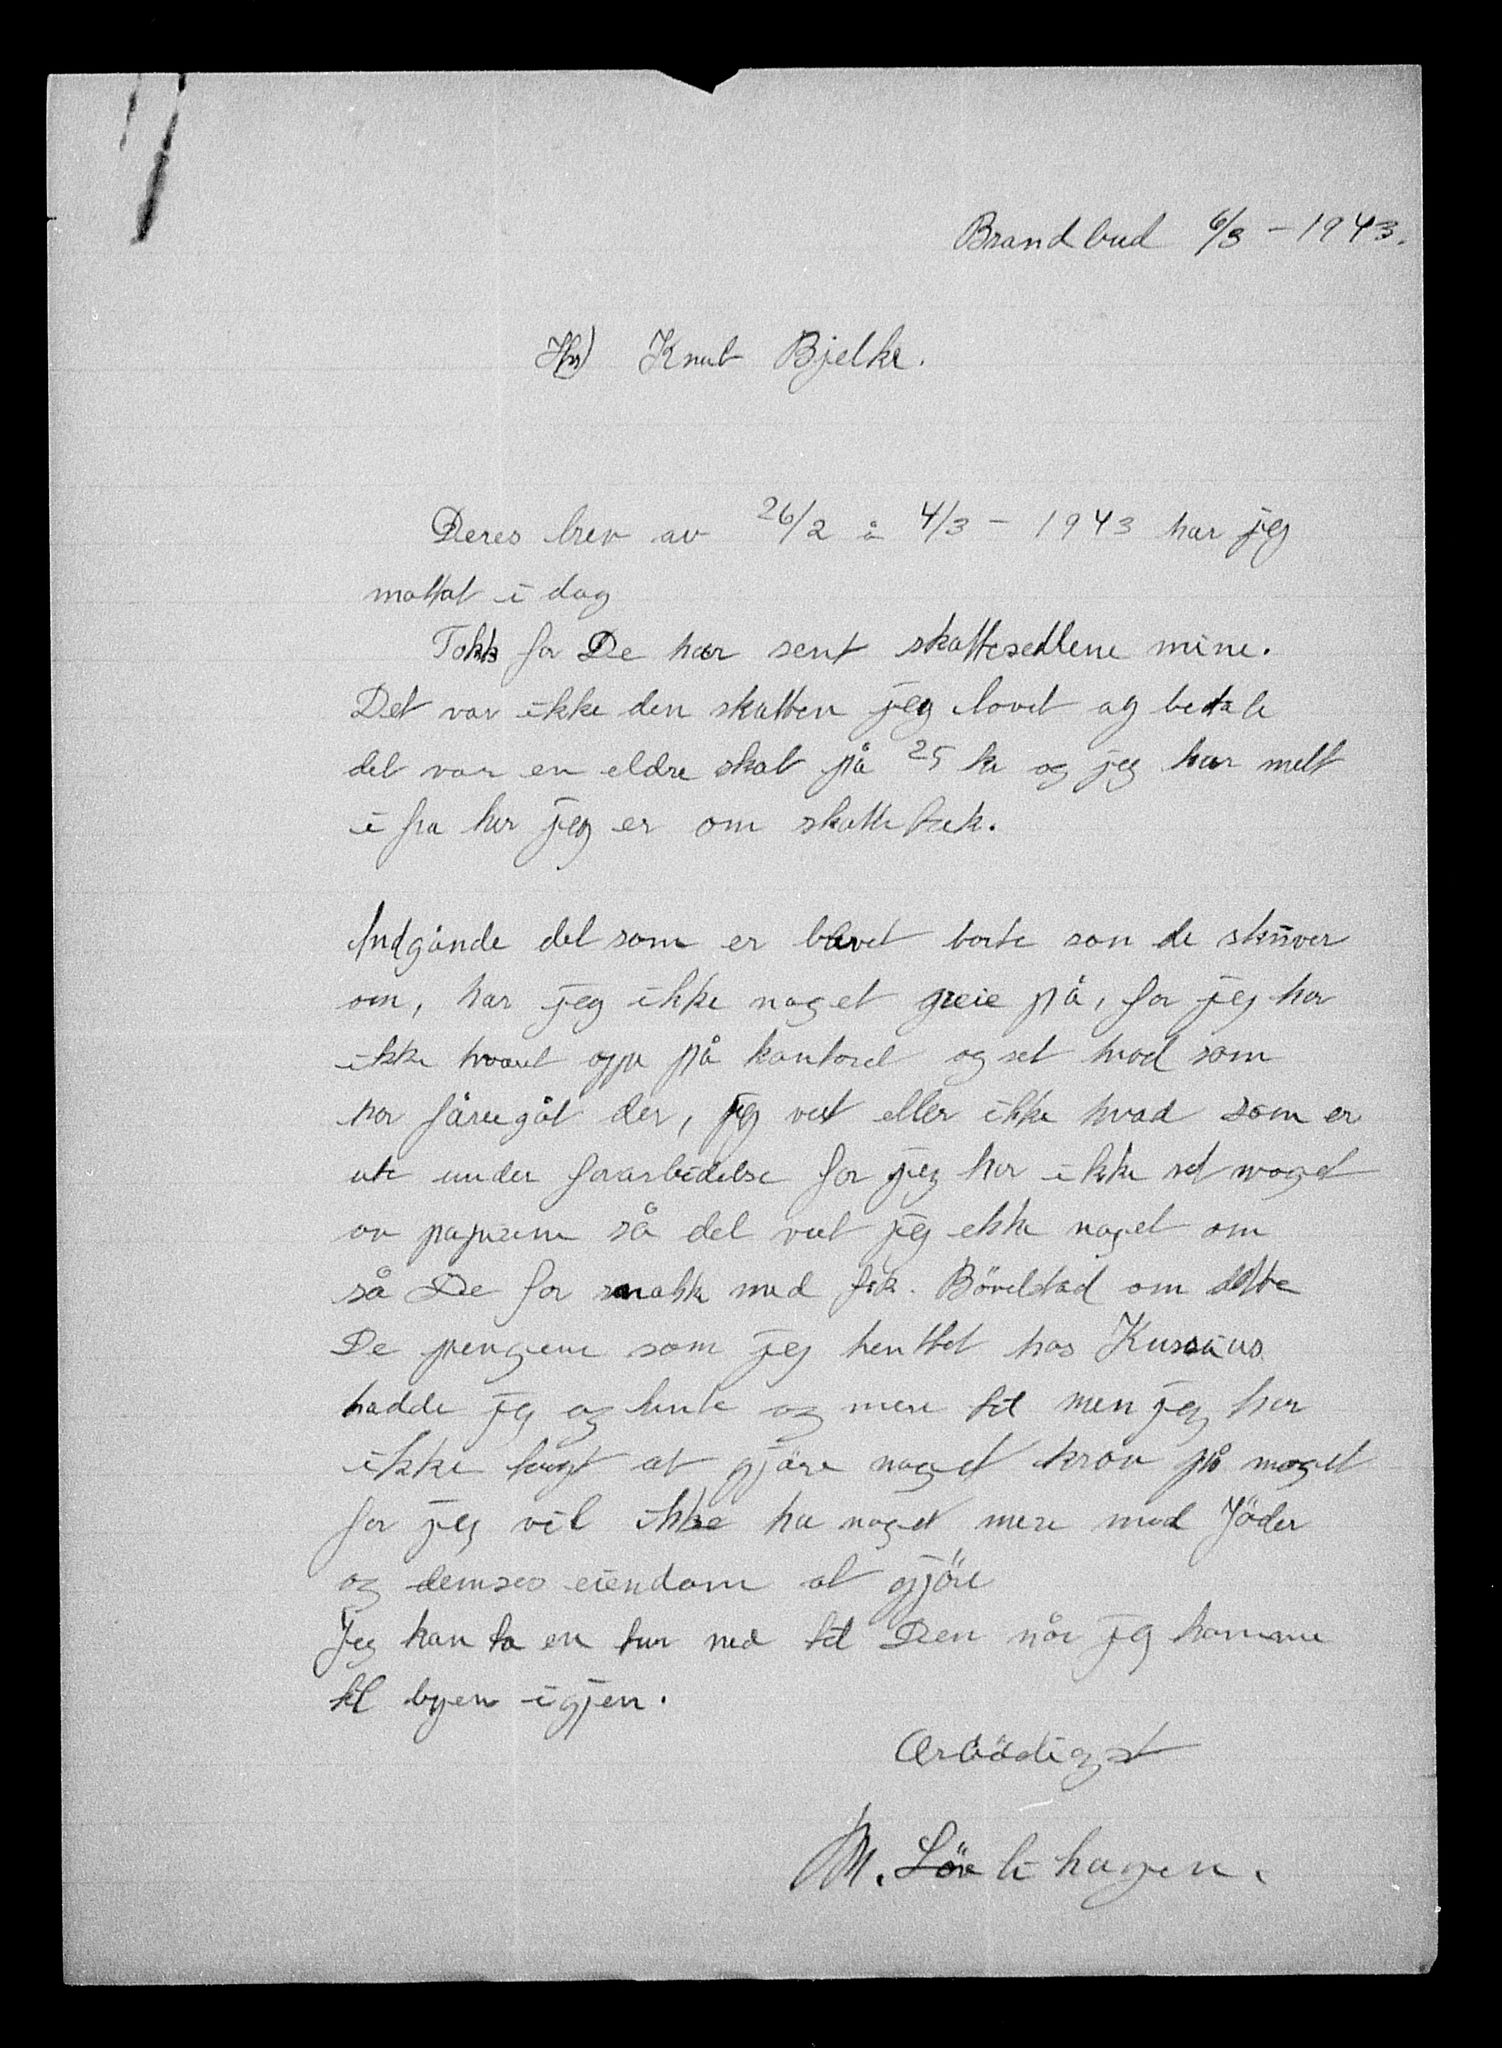 Brandbud 6/3 - 1943.
Hr) Knut Bjelke.
Deres brev av 26/2 å 4/3 - 1943 har jeg
mottat i dag
Takk for De har sent skattesedlene mine.
Det var ikke den skatten jeg lovet og betale
det var en eldre skat på 25 kr og jeg har melt
i fra her jeg er om skattetrek.
Indgånde det som er blevet borte som de skriver
om, har jeg ikke noget greie på, for jeg har
ikke været oppe på kontoret og set hvad som
har foregåt der, jeg vet eller ikke hvad som er
ute under forarbeidelse for jeg har ikke set noget
av papirene så det vet jeg ekke noget om
så De for snakke med frk. Bövelstad om dette
De pengene som jeg henttet hos
hadde jeg og hente og mere til men jeg har
ikke tengt at gjöre noget krav på noget
for jeg vil ikke ha noget mere med Jöder
og demses eiendom at gjöre
Jeg kan ta en tur ned til Dem når jeg komme
til byen igjen.
Ærbödigst
M. Lövlihagen.